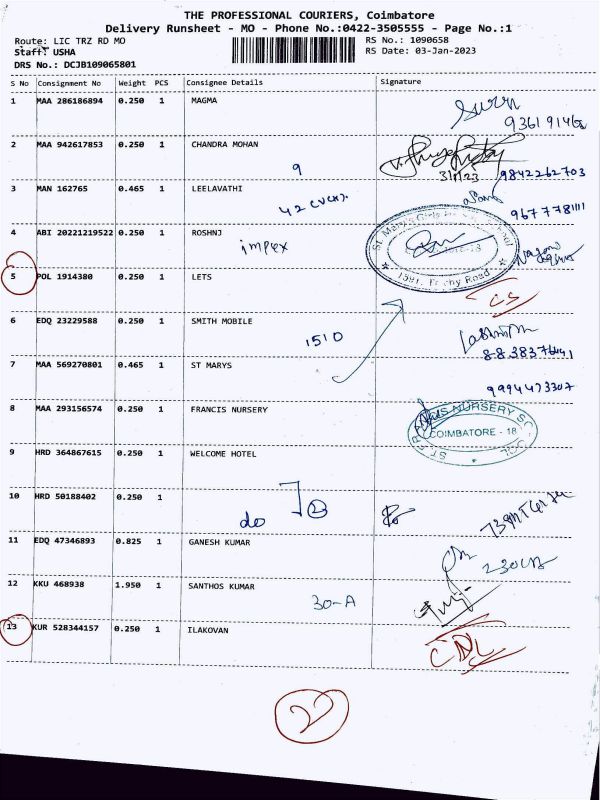 THE PROFESSIONAL COURIERS, Coimbatore
Delivery Runsheet - MO - Phone No.:0422-3505555 - Page No.:1
Route: LIC TRZ RD MO
RS No.: 1090658
Staff: USHA
RS Date: 03-Jan-2023
DRS No.: DCJB109065801
S No Consignment No Weight PCS Consignee Details Signature
1 MAA 286186894 0.250 1 MAGMA
93619146
2 MAA 942617853 0.250 1 CHANDRA MOHAN
3/1/23 9842262703
9
3 MAN 162765 0.465 1 LEELAVATHI
42 (VCH).
9677781111
4 ABI 20221219522 0.250 1 ROSHNJ
impex
St. Mary's Girls School
1591, Trichy Road
5 POL 1914380 0.250 1 LETS
CS
6 EDQ 23229588 0.250 1 SMITH MOBILE
1510
7 MAA 569270801 0.465 1 ST MARYS
9994473307
8 MAA 293156574 0.250 1 FRANCIS NURSERY
ST. FRANCIS NURSERY SCHOOL
COIMBATORE - 18
9 HRD 364867615 0.250 1 WELCOME HOTEL
10 HRD 50188402 0.250 1
do
2
11 EDQ 47346893 0.825 1 GANESH KUMAR
12 KKU 468938 1.950 1 SANTHOS KUMAR
30-A
13 KUR 528344157 0.250 1 ILAKOVAN
CDL